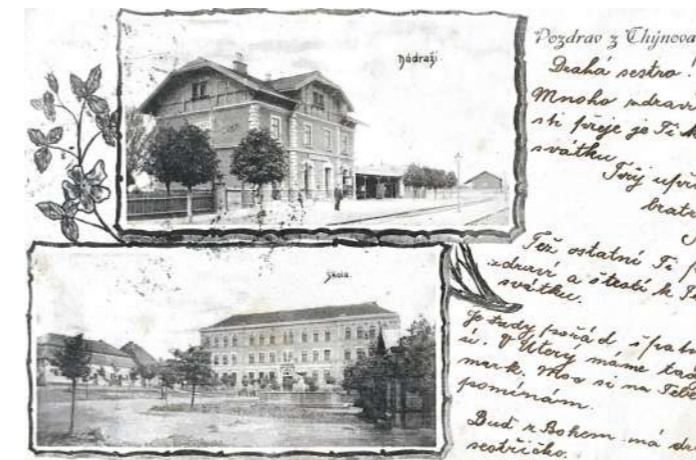 Nádraží.
Škola.
Pozdrav z Chýnova
Drahá sestro
Mnoho zdraví
sti přeje je Ti
svátku
Tvůj
brat
Též ostatní Ti
zdraví a štěstí k
svátku.
Je tady pořád
ší. V Úterý máme
mark.
si na Tebe
pomínám.
Buď s Bohem má
sestřičko.